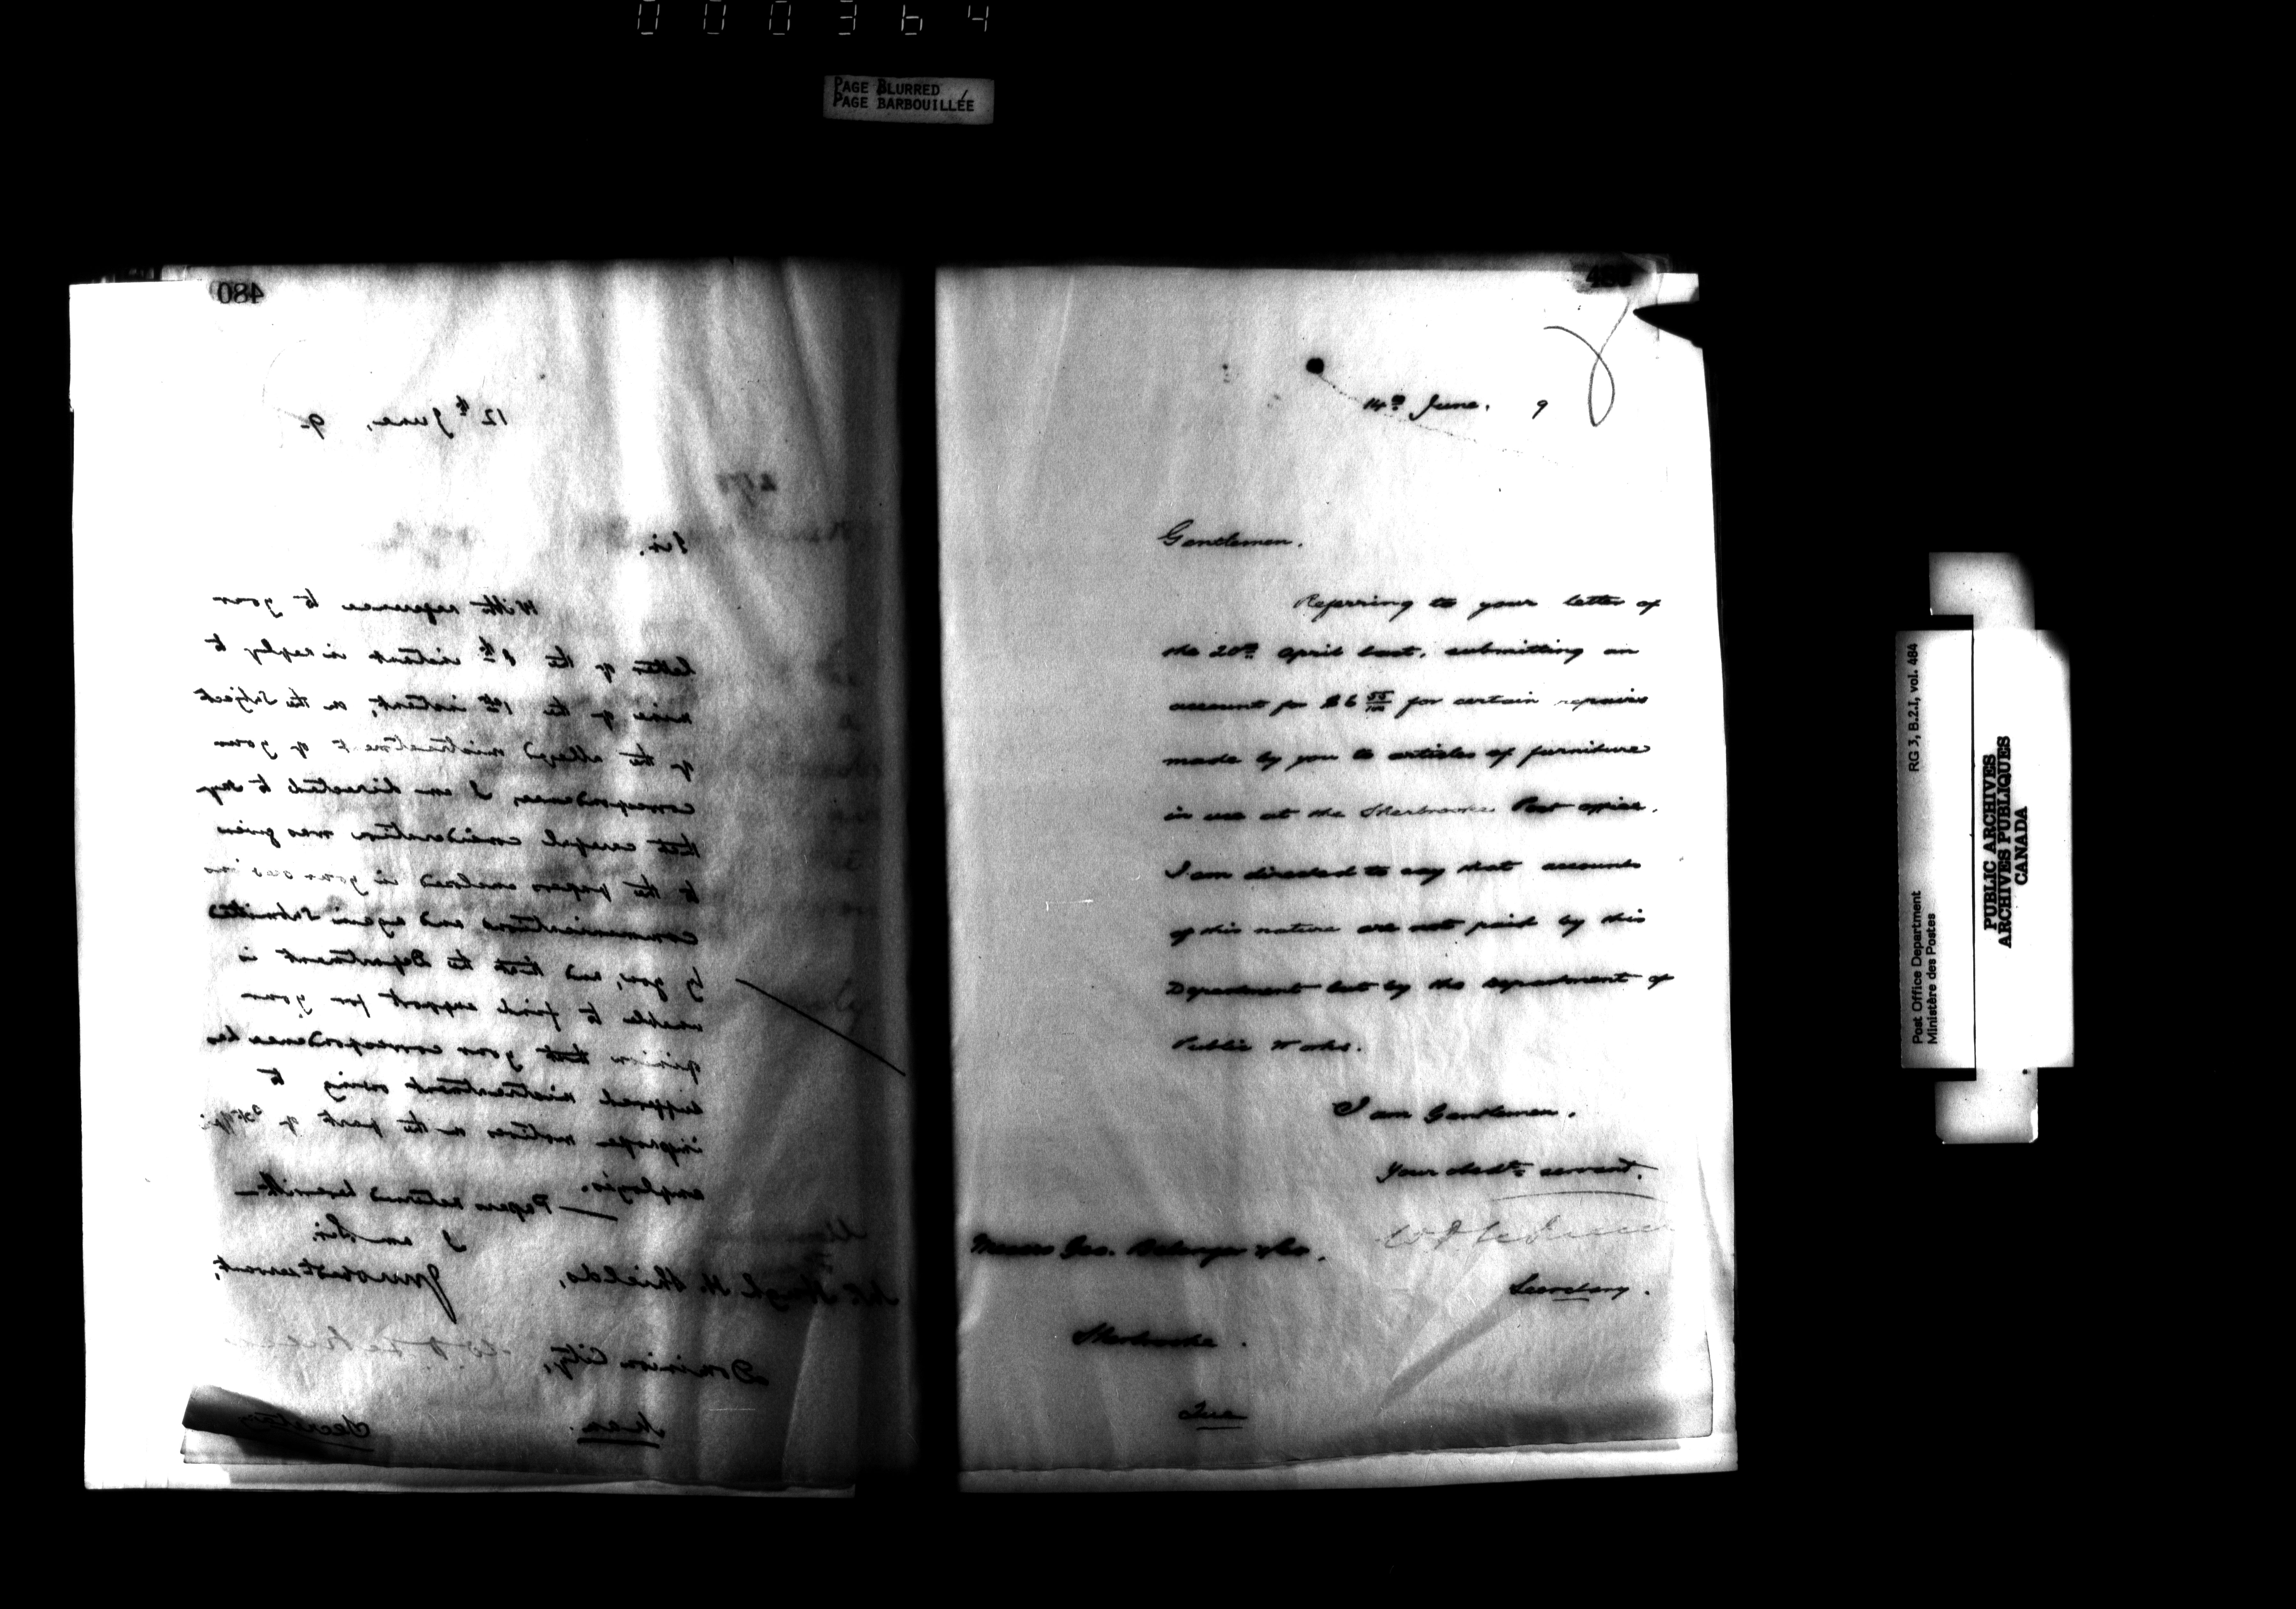 000364
PAGE BLURRED
PAGE BARBOUILLÉE
480
12th June, 9
Sir.
With reference to your
letter of the 8th instant in reply to
mine of the 1st instant, on the subject
of the alleged mistreatment of your
correspondence, I am directed to say
that careful consideration was given
to the papers enclosed in your
communications and again submitted
by you, and that the Department is
unable to find support for your
opinion that your correspondence has
suffered mistreatment owing to
improper motives on the part of
employés.
— Papers returned herewith —
I am Sir.
Your obdt servant,
Mr. Hugh H. Shields,
Dominion City,
Man.
Secretary
14th June. 9
Gentlemen.
Referring to your letter of
the 20th April last, submitting an
account for $6 55/100 for certain repairs
made by you to articles of furniture
in use at the Sherbrooke Post office.
I am directed to say that accounts
of this nature are not paid by this
Department but by the department of
Public Works.
I am Gentlemen.
Your obedt servant.
Messrs Geo. Belanger & Co.
Secretary.
Sherbrooke.
Que
RG 3, B.2.I, vol. 484
Post Office Department
Ministère des Postes
PUBLIC ARCHIVES
ARCHIVES PUBLIQUES
CANADA